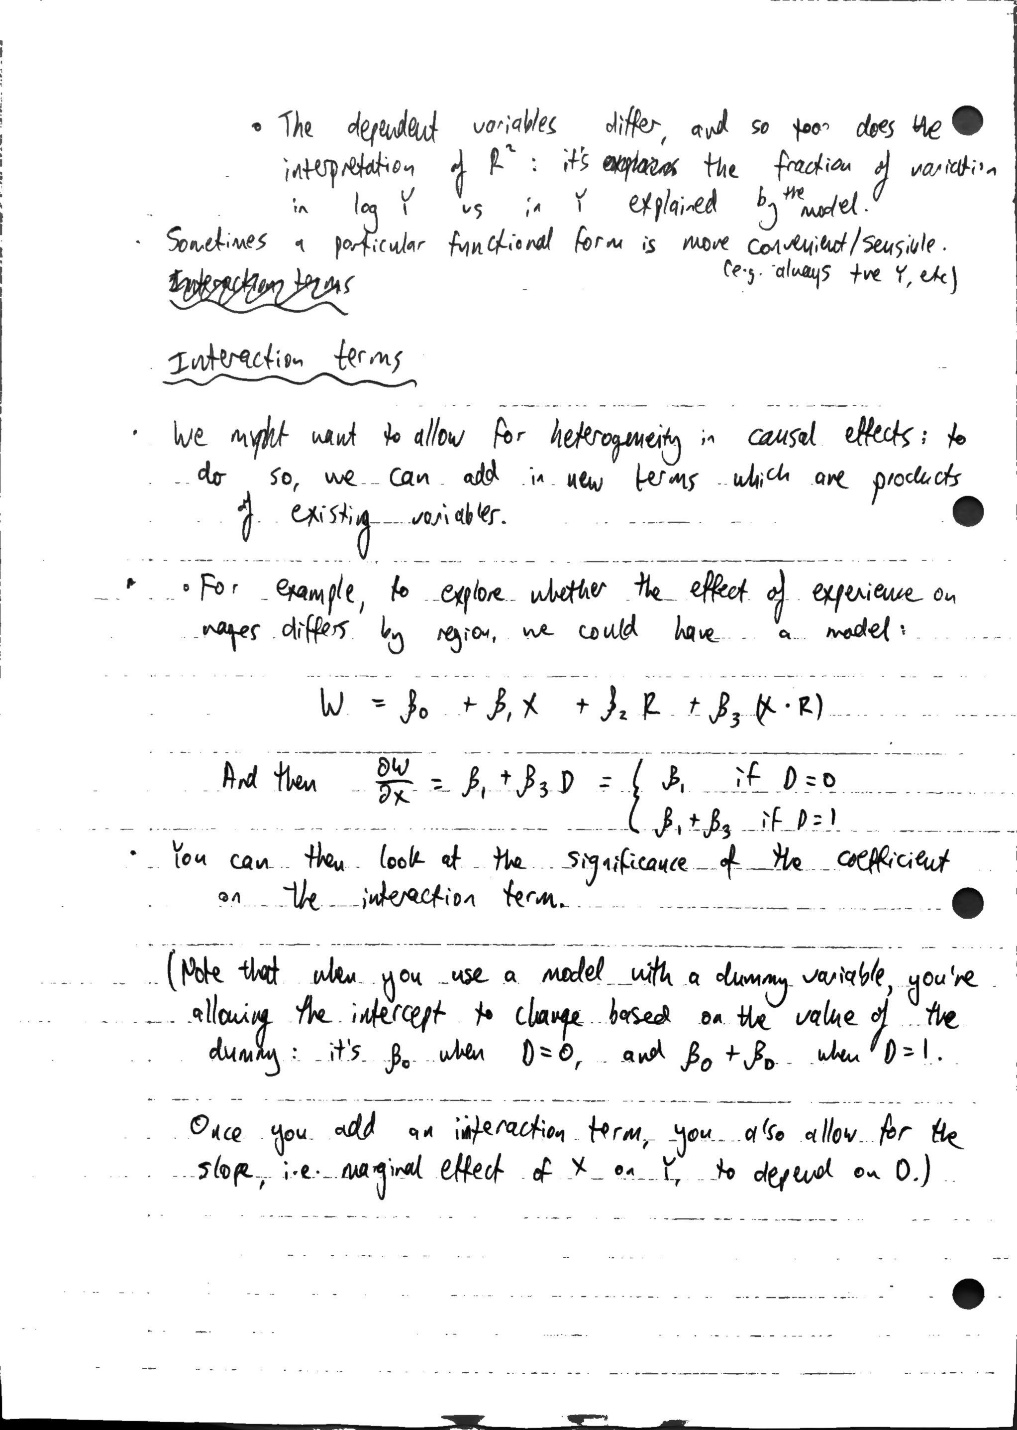 • The dependent variables differ, and so too does the
interpretation of R²: it's the fraction of variation
in log Y vs in Y explained by the model.
· Sometimes a particular functional form is more convenient/sensible.
(e.g. always +ve Y, etc)
Interaction terms
Interaction terms
· We might want to allow for heterogeneity in causal effects: to
do so, we can add in new terms which are products
of existing variables.
• For example, to explore whether the effect of experience on
wages differs by region, we could have a model:
W = β₀ + β₁X + β₂R + β₃(X·R)
And then ∂W/∂X = β₁ + β₃D = { β₁ if D=0
β₁+β₃ if D=1
· You can then look at the significance of the coefficient
on the interaction term.
(Note that when you use a model with a dummy variable, you're
allowing the intercept to change based on the value of the
dummy: it's β₀ when D=0, and β₀ + β_D when D=1.
Once you add an interaction term, you also allow for the
slope, i.e. marginal effect of X on Y, to depend on D.)